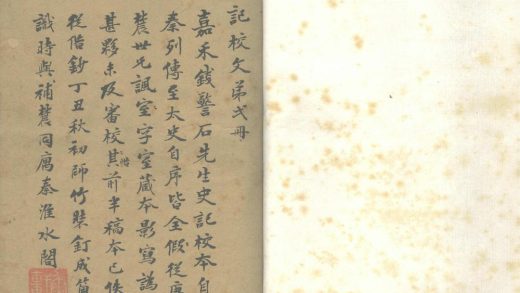 記校文弟弍冊
嘉禾錢警石先生史記校本自
秦列傳至太史自序皆全假從度
農世兄諷字室藏本影寫譌
甚夥未及審校其前半稿本已佚
從階鈔丁丑秋初師竹裝釘成
識時與補農同寓秦淮水閣